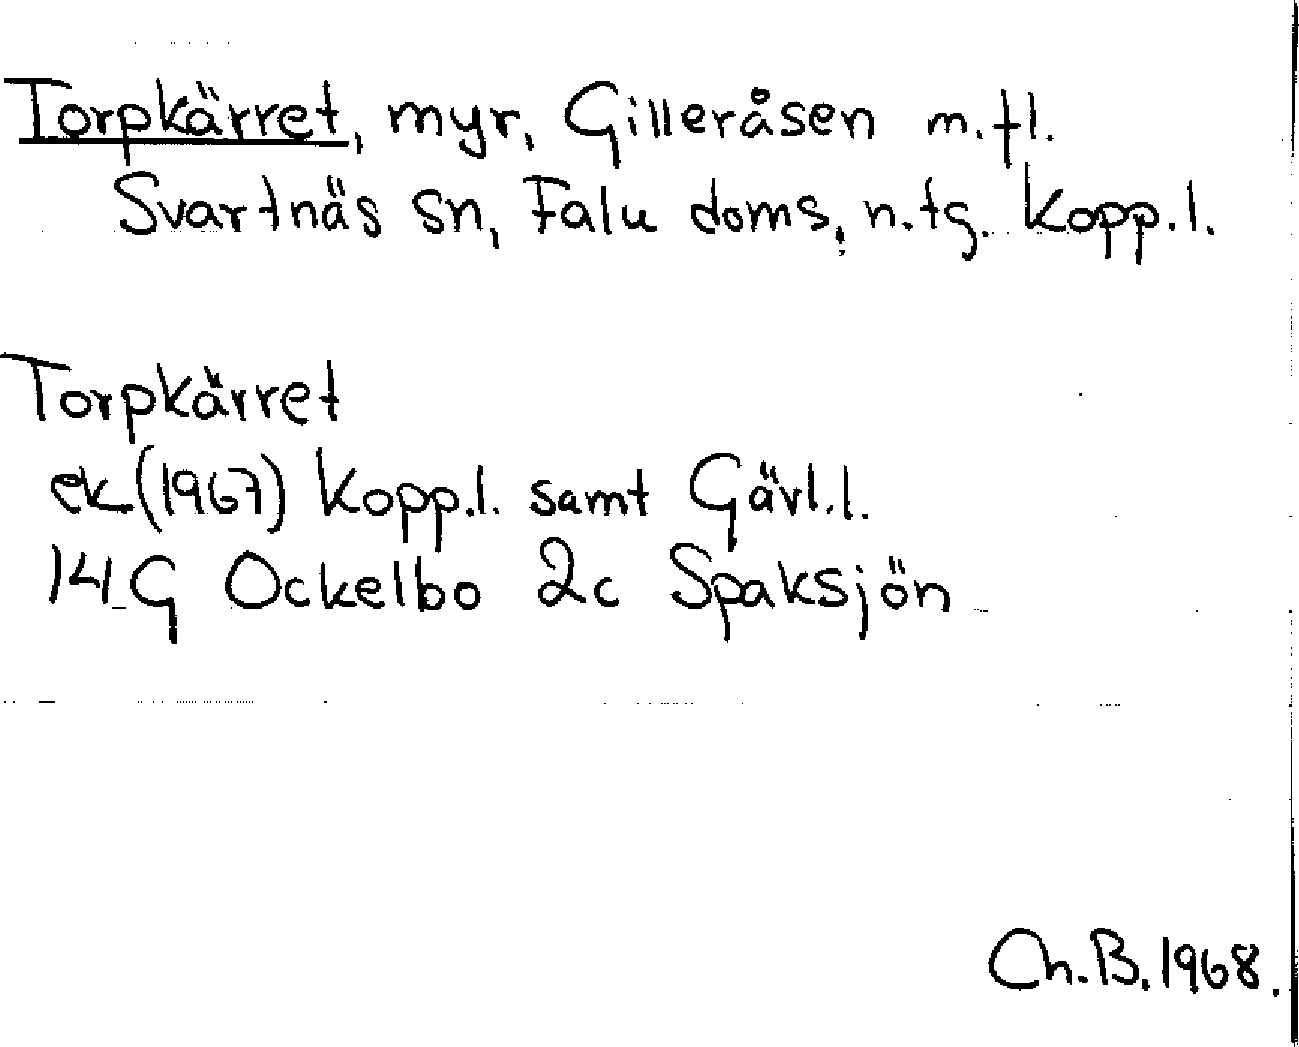 Torpkärret, myr, Gilleråsen m.fl.
Svartnäs sn, Falu doms, n.tg. Kopp.l.
Torpkärret
ek (1967) Kopp.l. samt Gävl.l.
14 G Ockelbo 2c Spaksjön
Ch.B. 1968.